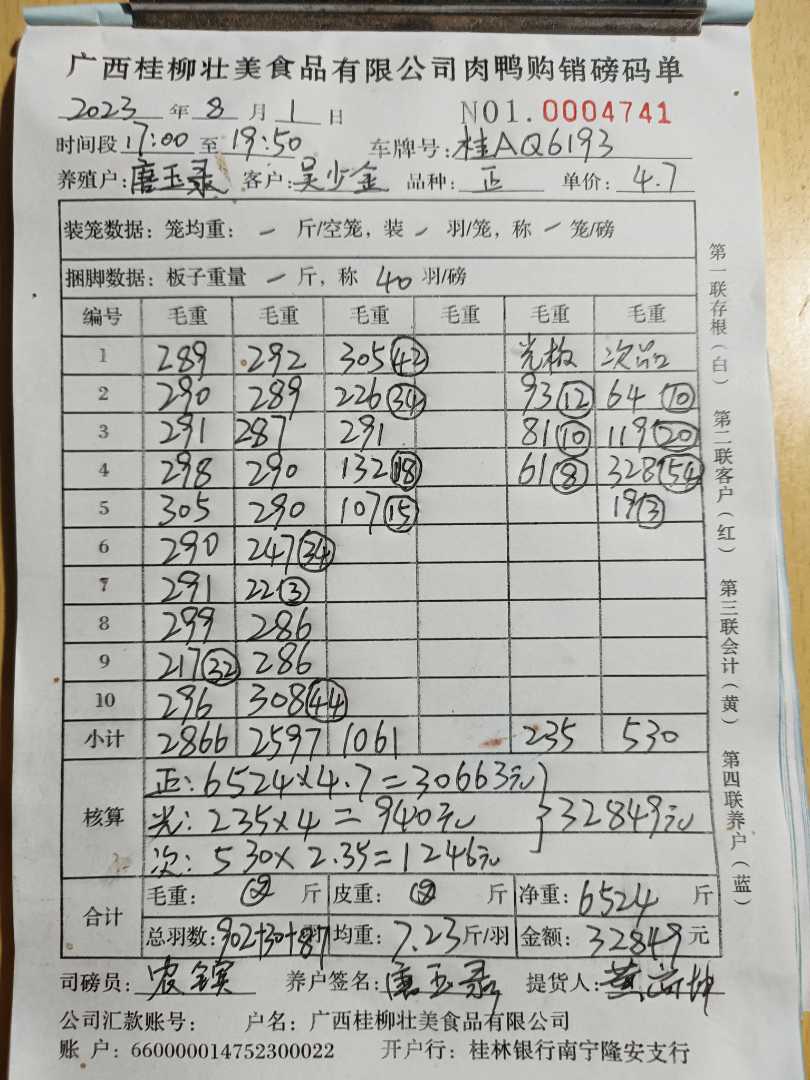 广西桂柳壮美食品有限公司肉鸭购销磅码单
2023 年 8 月 1 日 NO1.0004741
时间段 17:00 至 19:50 车牌号: 桂AQ6193
养殖户: 唐玉录 客户: 吴少金 品种: 正 单价: 4.7
装笼数据: 笼均重: — 斤/空笼, 装 — 羽/笼, 称 — 笼/磅
捆脚数据: 板子重量 — 斤, 称 40 羽/磅
编号 毛重 毛重 毛重 毛重 毛重 毛重
1 289 292 305 (42) 光板 次品
2 290 289 226 (34) 93 (12) 64 (10)
3 291 287 291 81 (10) 119 (20)
4 298 290 132 (18) 61 (8) 328 (54)
5 305 290 107 (15) 19 (3)
6 290 247 (34)
7 291 22 (3)
8 299 286
9 217 (32) 286
10 296 308 (44)
小计 2866 2597 1061 235 530
核算
正: 6524×4.7=30663元
光: 235×4=940元 } 32849元
次: 530×2.35=1246元
合计
毛重: 斤 皮重: 斤 净重: 6524 斤
总羽数: 902+30+87 羽 均重: 7.23 斤/羽 金额: 32849 元
司磅员: 养户签名: 唐玉录 提货人:
公司汇款账号: 户名: 广西桂柳壮美食品有限公司
账 户: 660000014752300022 开户行: 桂林银行南宁隆安支行
第一联存根(白) 第二联客户(红) 第三联会计(黄) 第四联养户(蓝)